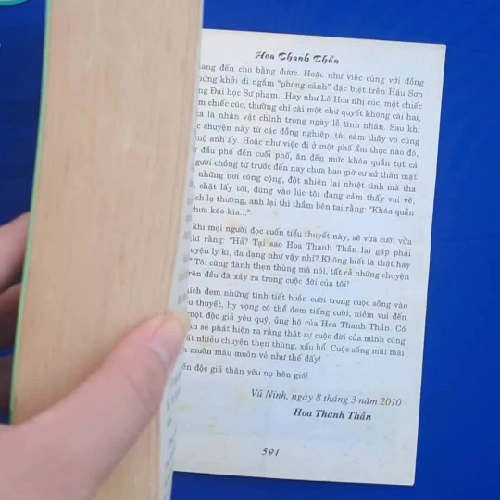 Hoa Thanh Thần
mang đến cho bằng được. Hoặc như việc cùng với đồng
hứng khởi đi ngắm "phong cảnh" đặc biệt trên Hậu Sơn
ng Đại học Sư phạm. Hay như Lê Hoa nhị cúc, một chiếc
m chiếc cúc, thường chỉ cài một chứ quyết không cài hai,
là nhân vật chính trong ngày lễ tình nhân. Sau khi
c chuyện này từ các đồng nghiệp, tôi cảm thấy vô cùng
anh ấy. Hoặc như việc đi ở một phố ẩm thực nào đó,
đầu phố đến cuối phố, ăn đến mức khóa quần tụt cả
gười chồng từ trước đến nay chưa bao giờ cư xử thân mật
những nơi công cộng, đột nhiên lại nhiệt tình mà
chặt lấy tôi, đúng vào lúc tôi đang cảm thấy vui vẻ,
ch lạ thường, anh lại thì thầm bên tai rằng: "Khóa quần
kìa..."
khi mọi người đọc cuốn tiểu thuyết này, sẽ vừa cười, vừa
hĩ rằng: "Hả? Tại sao Hoa Thanh Thần lại gặp phải
uyện ly kì, đa dạng như vậy nhỉ? Không biết là thật hay
"Tôi cũng đành thẹn thùng mà nói, tất cả những chuyện
trên đều đã xảy ra trong cuộc đời của tôi!
hích đem những tình tiết hài hước trong cuộc sống vào
u thuyết, hy vọng có thể đem tiếng cười, niềm vui đến
một độc giả yêu quý, ủng hộ của Hoa Thanh Thần. Có
sẽ phát hiện ra rằng thật sự cuộc đời của mình cũng
ất nhiều chuyện thẹn thùng, xấu hổ. Cuộc sống mãi mãi
muôn màu muôn vẻ như thế đấy!
ến độc giả thân yêu nụ hôn gió!
Vũ Ninh, ngày 8 tháng 3 năm 2010
Hoa Thanh Thần
591